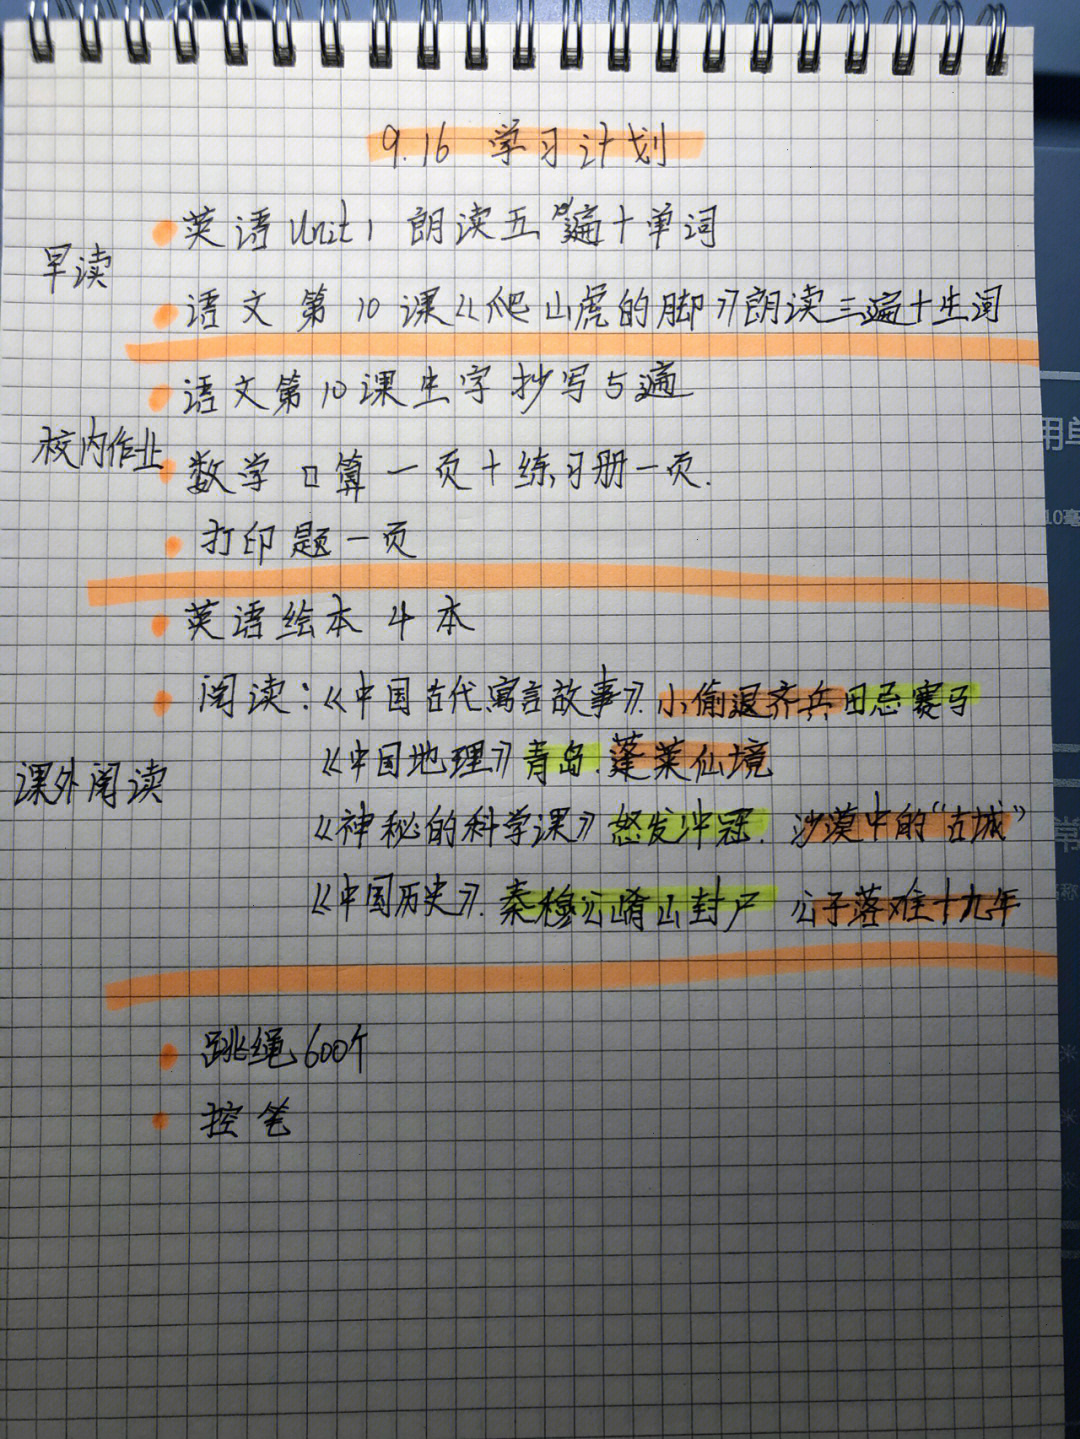 9.16 学习计划
英语 Unit 1 朗读五遍+单词
早读
语文第10课《爬山虎的脚》朗读三遍+生词
语文第10课生字抄写5遍
校内作业
数学口算一页+练习册一页.
打印题一页
英语绘本4本
阅读:《中国古代寓言故事》.小偷退齐兵 田忌赛马
课外阅读
《中国地理》青岛.蓬莱仙境
《神秘的科学课》怒发冲冠.沙漠中的“古城”
《中国历史》.秦穆公崤山封尸 公子落难十九年
跳绳600个
控笔
用单
10毫
常
米
米
米